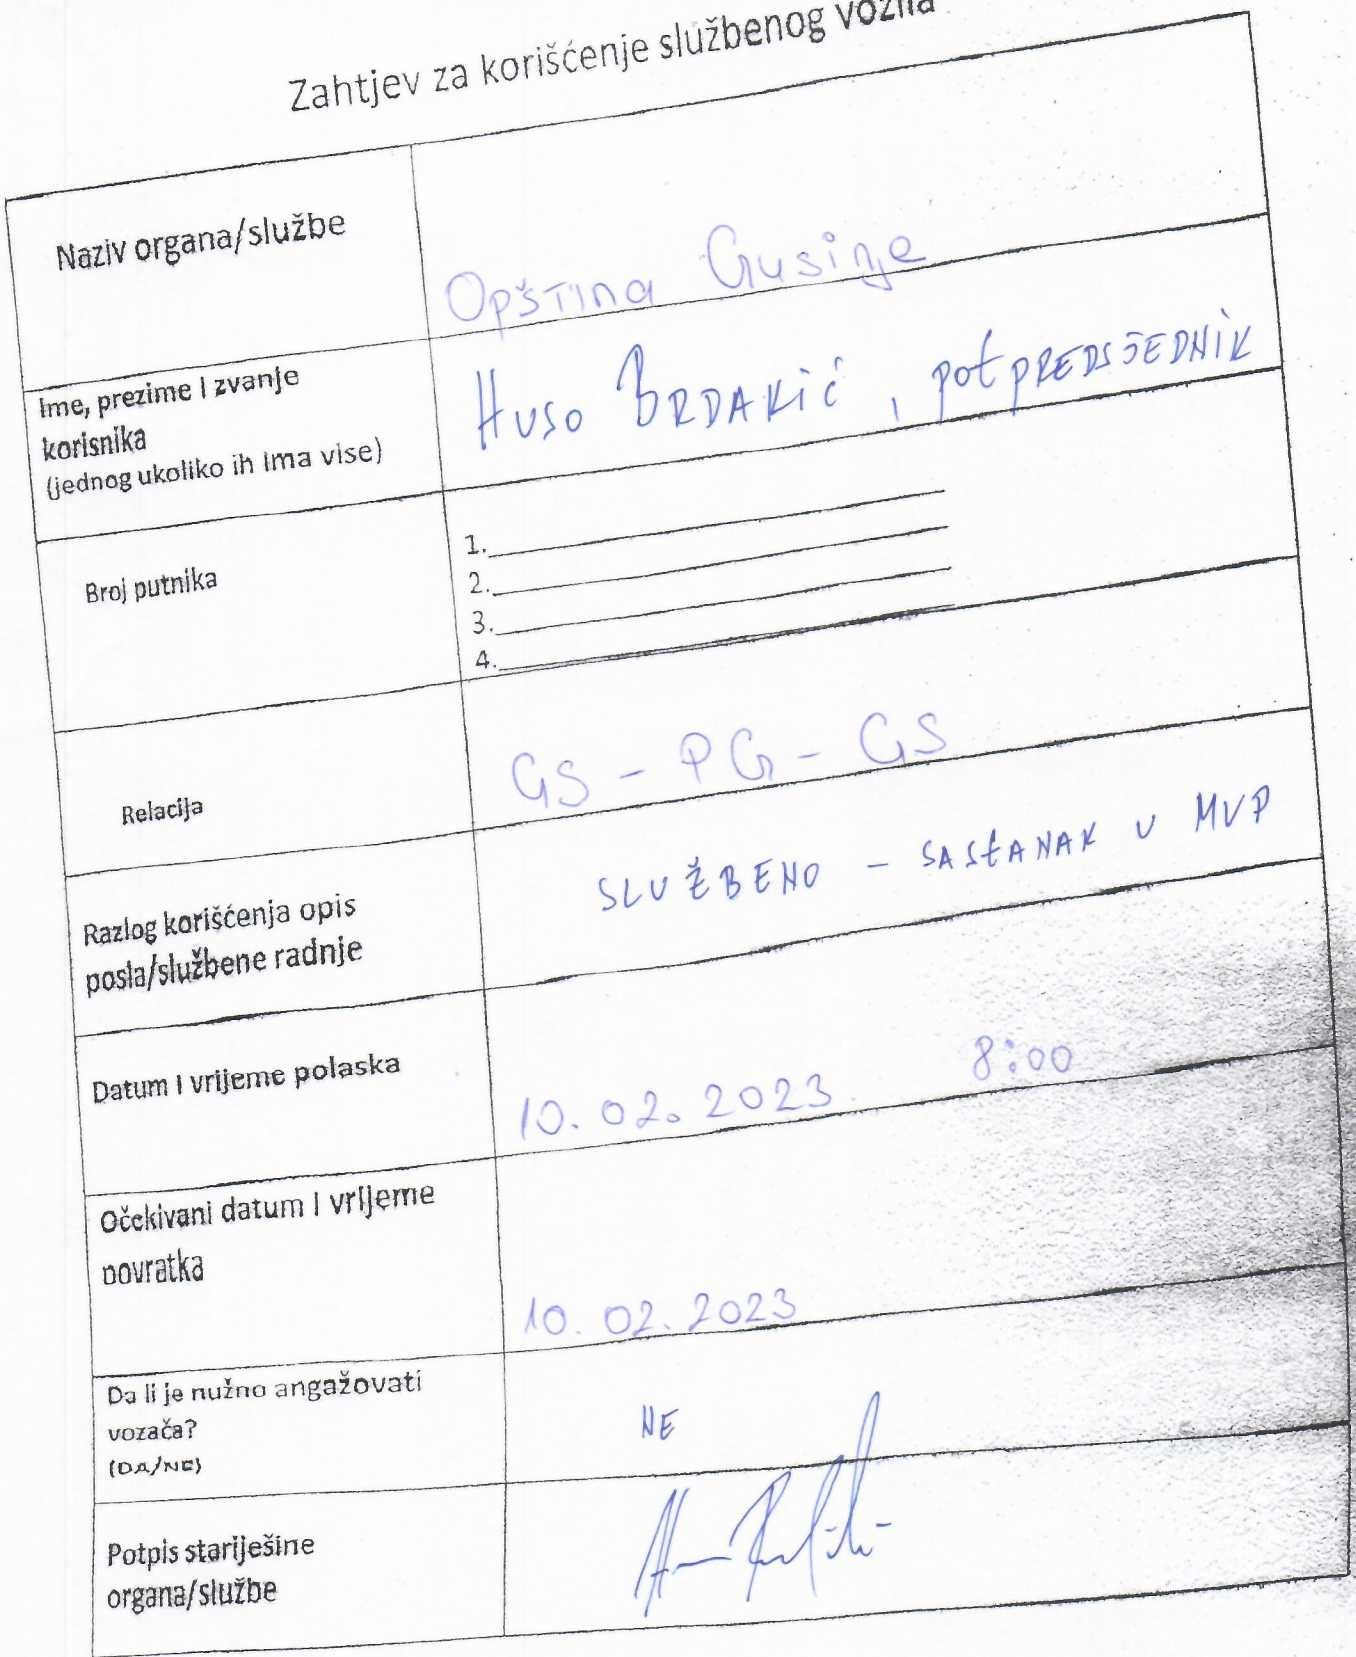 Zahtjev za korišćenje službenog vozila
Naziv organa/službe
Opština Gusinje
Ime, prezime I zvanje
korisnika
(jednog ukoliko ih ima vise)
Huso BRDAKić, potpredsjednik
Broj putnika
1.
2.
3.
4.
Relacija
GS - PG - GS
Razlog korišćenja opis
posla/službene radnje
SLUŽBENO - SAStANAK U MVP
Datum I vrijeme polaska
10. 02. 2023. 8:00
Očekivani datum I vrijeme
povratka
10. 02. 2023
Da li je nužno angažovati
vozača?
(DA/NE)
NE
Potpis starješine
organa/službe